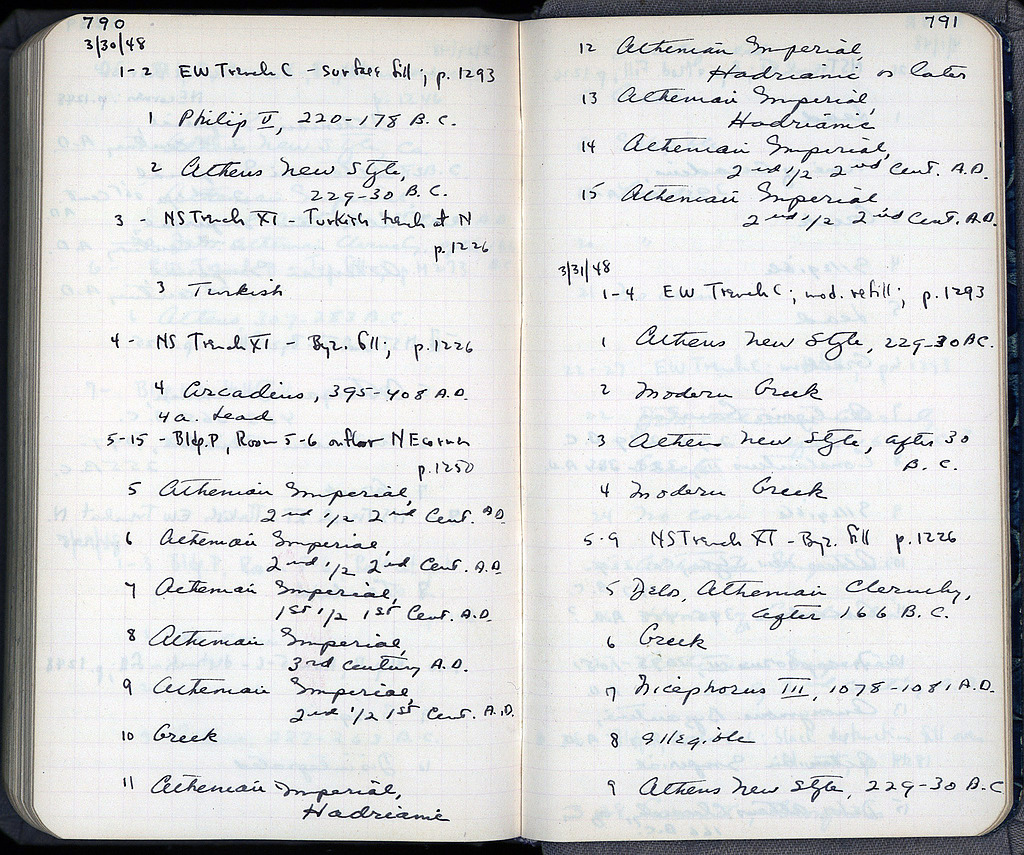 790
3/30/48
1-2 EW Trench C - surface fill; p. 1293
1 Philip V, 220-178 B.C.
2 Athens New Style,
229-30 B.C.
3 - NS Trench XI - Turkish trench at N
p. 1226
3 Turkish
4 - NS Trench XI - Byz. fill; p. 1226
4 Arcadius, 395-408 A.D.
4a. Lead
5-15 - Bldg. P, Room 5-6 on floor NE corner
p. 1250
5 Athenian Imperial,
2nd 1/2 2nd Cent. A.D.
6 Athenian Imperial,
2nd 1/2 2nd Cent. A.D.
7 Athenian Imperial,
1st 1/2 1st Cent. A.D.
8 Athenian Imperial,
3rd century A.D.
9 Athenian Imperial,
2nd 1/2 1st Cent. A.D.
10 Greek
11 Athenian Imperial,
Hadrianic
791
12 Athenian Imperial,
Hadrianic or later
13 Athenian Imperial,
Hadrianic
14 Athenian Imperial,
2nd 1/2 2nd Cent. A.D.
15 Athenian Imperial
2nd 1/2 2nd Cent. A.D.
3/31/48
1-4 EW Trench C; mod. refill; p. 1293
1 Athens New Style, 229-30 B.C.
2 Modern Greek
3 Athens New Style, after 30
B.C.
4 Modern Greek
5-9 NS Trench XI - Byz. fill p. 1226
5 Delos, Athenian Cleruchy,
after 166 B.C.
6 Greek
7 Nicephorus III, 1078-1081 A.D.
8 Illegible
9 Athens New Style, 229-30 B.C